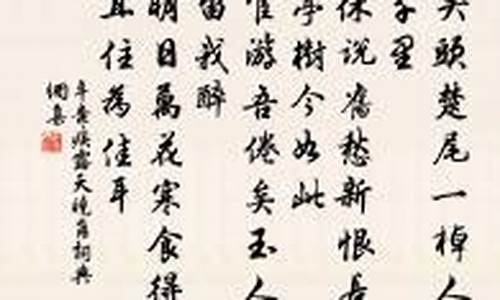 吴頭楚尾一棹人
千里
休說舊愁新恨長
亭樹今如此
宦游吾倦矣玉人
留我醉
明日萬花寒食得
且住為佳耳
辛棄疾霜天曉角詞典
網集